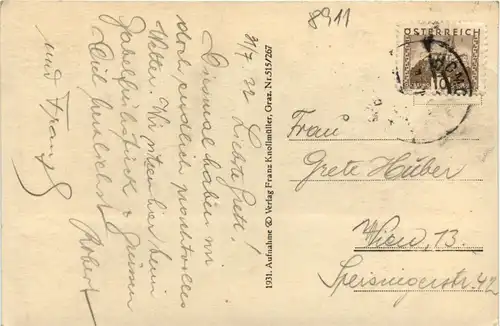 8911
ÖSTERREICH
31/7 32 Liebste Grete!
Diesmal haben wir
doch endlich prachtvolles
Wetter. Wir sitzen hier beim
Gabelfrühstück & grüssen
Dich herzlichst Robert
und Franzl
1931. Aufnahme Verlag Franz Knollmüller, Graz. Nr. 515/267
Frau
Grete Huber
Wien, 13.
Speisingerstr. 42